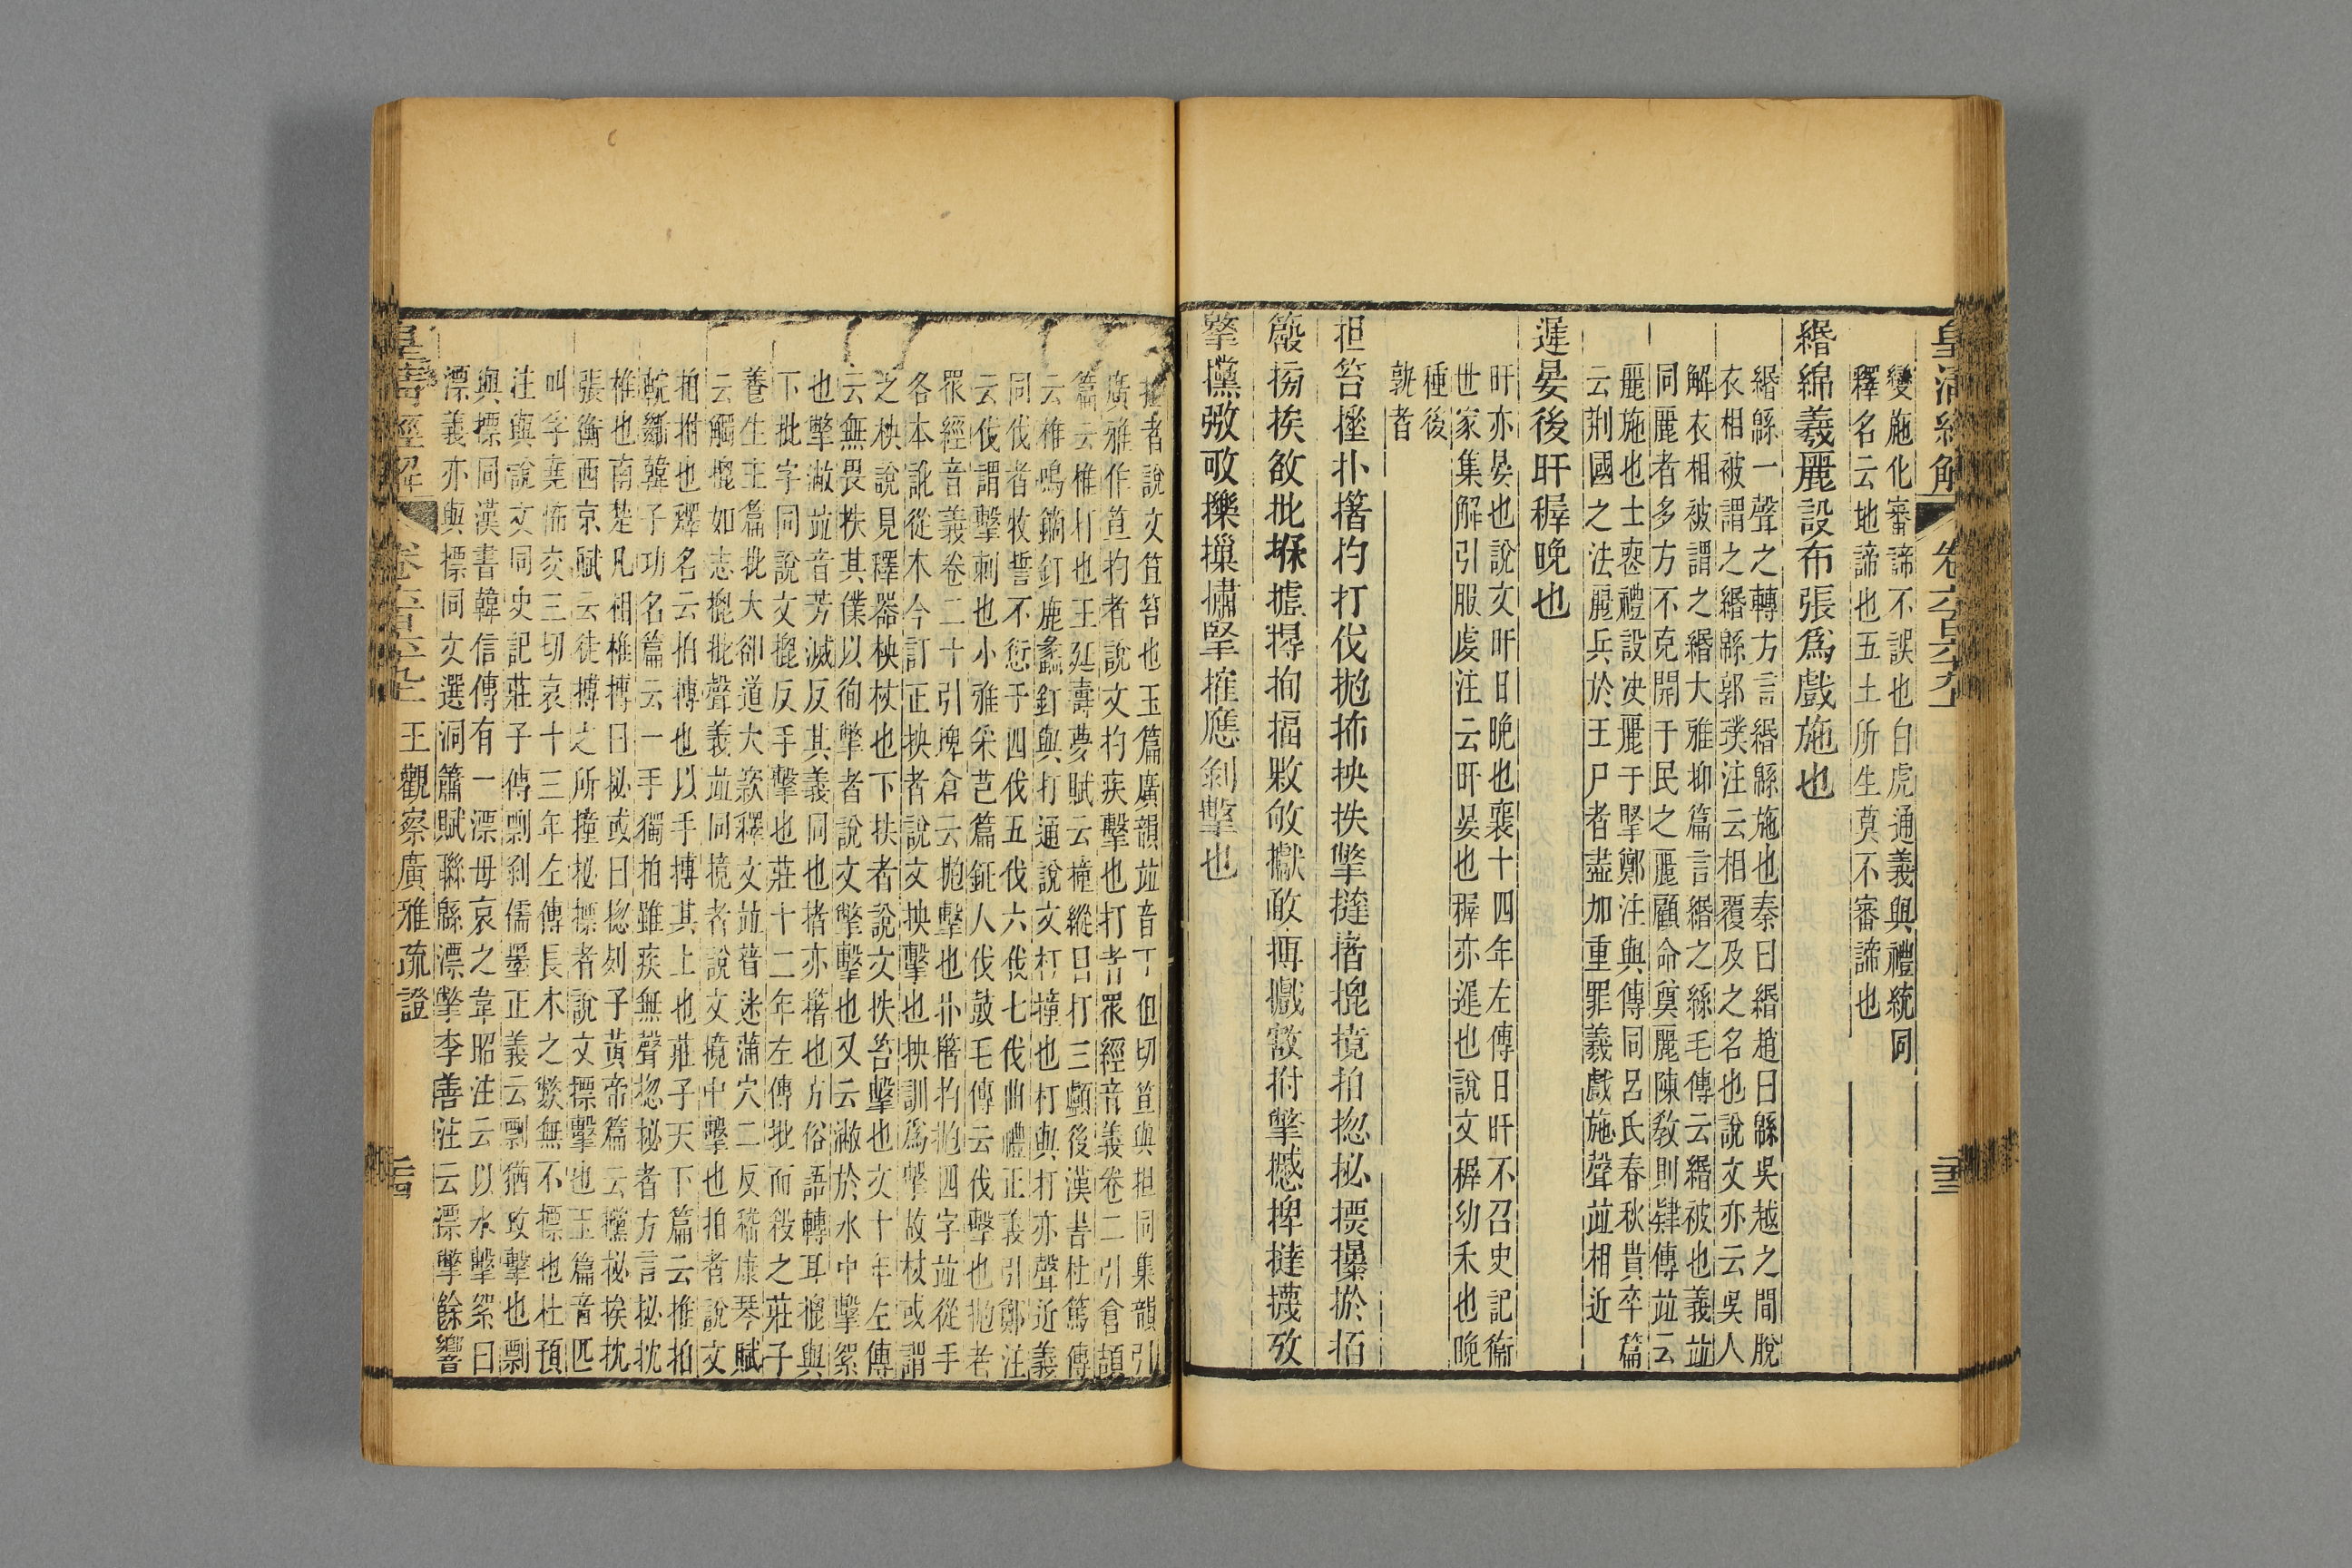 皇清經解 卷六百六十九
變施化審諦不誤也白虎通義與禮統同
釋名云地諦也五土所生莫不審諦也
緡綿羲麗設布張爲戲施也
緡緜一聲之轉方言緡緜施也秦曰緡趙曰緜吳越之間脫
衣相被謂之緡緜郭璞注云相覆及之名也說文亦云吳人
解衣相被謂之緡大雅抑篇言緡之絲毛傳云緡被也義並
同麗者多方不克開于民之麗顧命奠麗陳敎則肄傳竝云
麗施也士喪禮設决麗于掔鄭注與傳同呂氏春秋貴卒篇
云荆國之法麗兵於王尸者盡加重罪義戲施聲竝相近
遲晏後旰稺晚也
旰亦晏也說文旰日晚也襄十四年左傳日旰不召史記衞
世家集解引服虔注云旰晏也稺亦遲也說文稺幼禾也晚
種後
孰者
担笞挃扑撘扚打伐抛抪抰抶㧙撻揩㨢摬拍㧾拯摽㩧㧣拓
簸搒挨敋批㧷摅㨝拘揊敤攸㩵敃搏㩻敹拊擎撼捭撻擭攷
擎攩㪇㪃擽摷㩋掔搉應㓟擊也
者說文笪笞也玉篇廣韻竝音丁但切笪與担同集韻引
廣雅作笪扚者說文扚疾擊也打者衆經音義卷二引倉頡
篇云椎打也王延壽夢賦云撞縱目打三顱後漢書杜篤傳
云椎鳴鏑釘鹿蠡釘與打通說文朾撞也朾與打亦聲近義
同伐者牧誓不愆于四伐五伐六伐七伐曲禮正義引鄭注
云伐謂擊刺也小雅采芑篇鉦人伐鼓毛傳云伐擊也抛者
衆經音義卷二十引埤倉云抛擊也扑撘扚抛四字竝從手
各本訛從木今訂正抰者說文抰擊也抰訓爲擊故杖或謂
之柍說見釋器柍杖也下抶者說文抶笞擊也文十年左傳
云無畏抶其僕以徇㧙者說文㧙擊也又云潎於水中擊絮
也擎潎竝音芳滅反其義同也揩亦撘也方俗語轉耳㨢與
下批字同說文㨢反手擊也莊十二年左傳批而殺之莊子
養生主篇批大卻道大窾釋文竝音迷蒲穴二反嵇康琴賦
云觸㨢如志㨢批聲義竝同摬者說文摬中擊也拍者說文
拍拊也釋名云拍搏也以手搏其上也莊子天下篇云椎拍
輐斷韓子功名篇云一手獨拍雖疾無聲㧾㧙者方言㧙抌
椎也南楚凡相椎搏曰㧙或曰㧾列子黃帝篇云攩㧙挨抌
張衡西京賦云徒搏之所撞㧙摽者說文摽擊也玉篇音匹
叫孚堯怖交三切哀十三年左傳長木之斃無不摽也杜預
注與說文同史記莊子傳剽剝儒墨正義云剽猶攻擊也剽
與摽同漢書韓信傳有一漂母哀之韋昭注云以水擊絮曰
漂義亦與摽同文選洞簫賦聯緜漂擎李善注云漂擎餘響
皇清經解 卷六百六十九 王觀察廣雅疏證